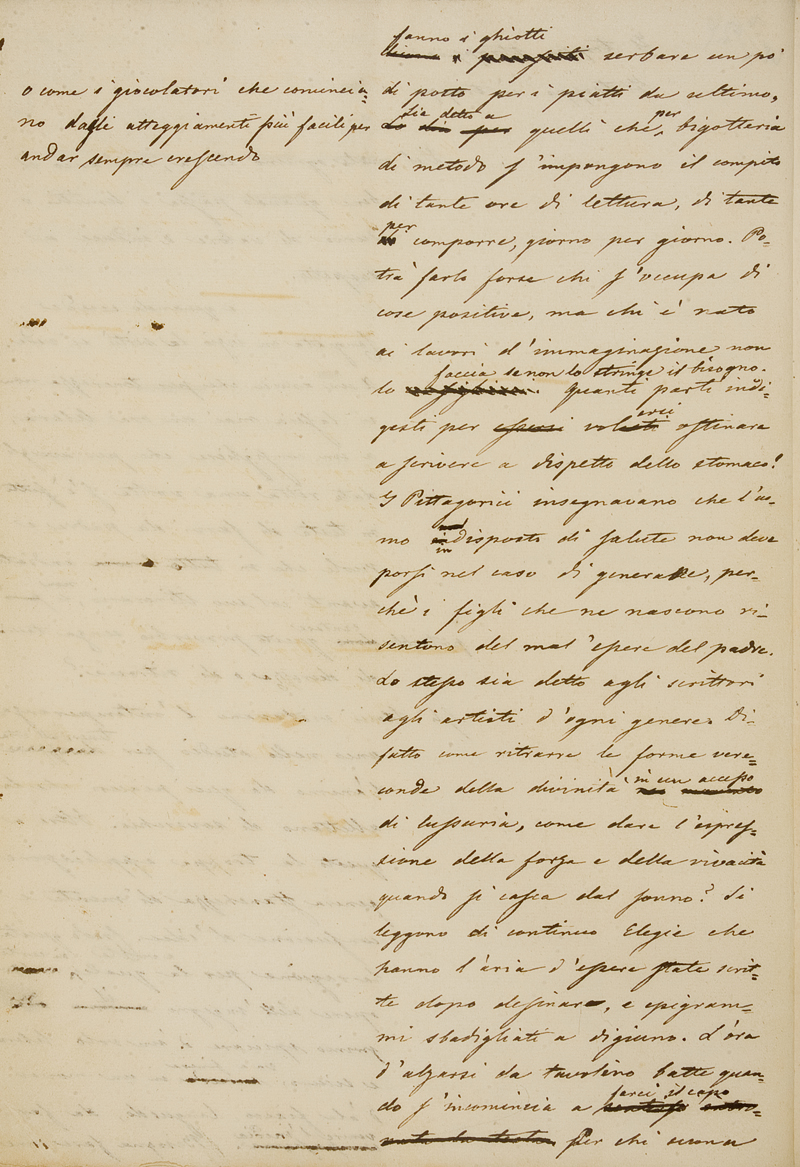 o come i giocolatori che comincia=
no dagli atteggiamenti più facili per
andar sempre crescendo
fanno i ghiotti
serbare un pò
di posto per i piatti da ultimo,
sia detto a per
Lo dico per quelli che, bigotteria
di metodo s'impongono il compito
di tante ore di lettura, di tante
per
comporre, giorno per giorno. Po-
trà farlo forse chi s'occupa di
cose positive, ma chi è nato
ai lavori d'immaginazione non
faccia se non lo stringe il bisogno.
lo Quanti parti indi-
erci
gesti per essersi voluti ostinare
a scrivere a dispetto dello stomaco!
I Pittagorici insegnavano che l'uo-
mo disposto di salute non deve
in
porsi nel caso di generare, per-
chè i figli che ne nascono ri-
sentono del mal'essere del padre.
Lo stesso sia detto agli scrittori
agli artisti d'ogni genere. Di-
fatto come ritrarre le forme vere=
in un accesso
conde della divinità nel momento
di lussuria, come dare l'espres=
sione della forza e della vivacità
quando si casca dal sonno? Si
leggono di continuo Elegie che
hanno l'aria d'essere state scrit=
te dopo desinare, e epigram-
mi sbadigliati a digiuno. L'ora
d'alzarsi da tavolino batte quan-
farci il capo
do s'incomincia a
Per chi suona